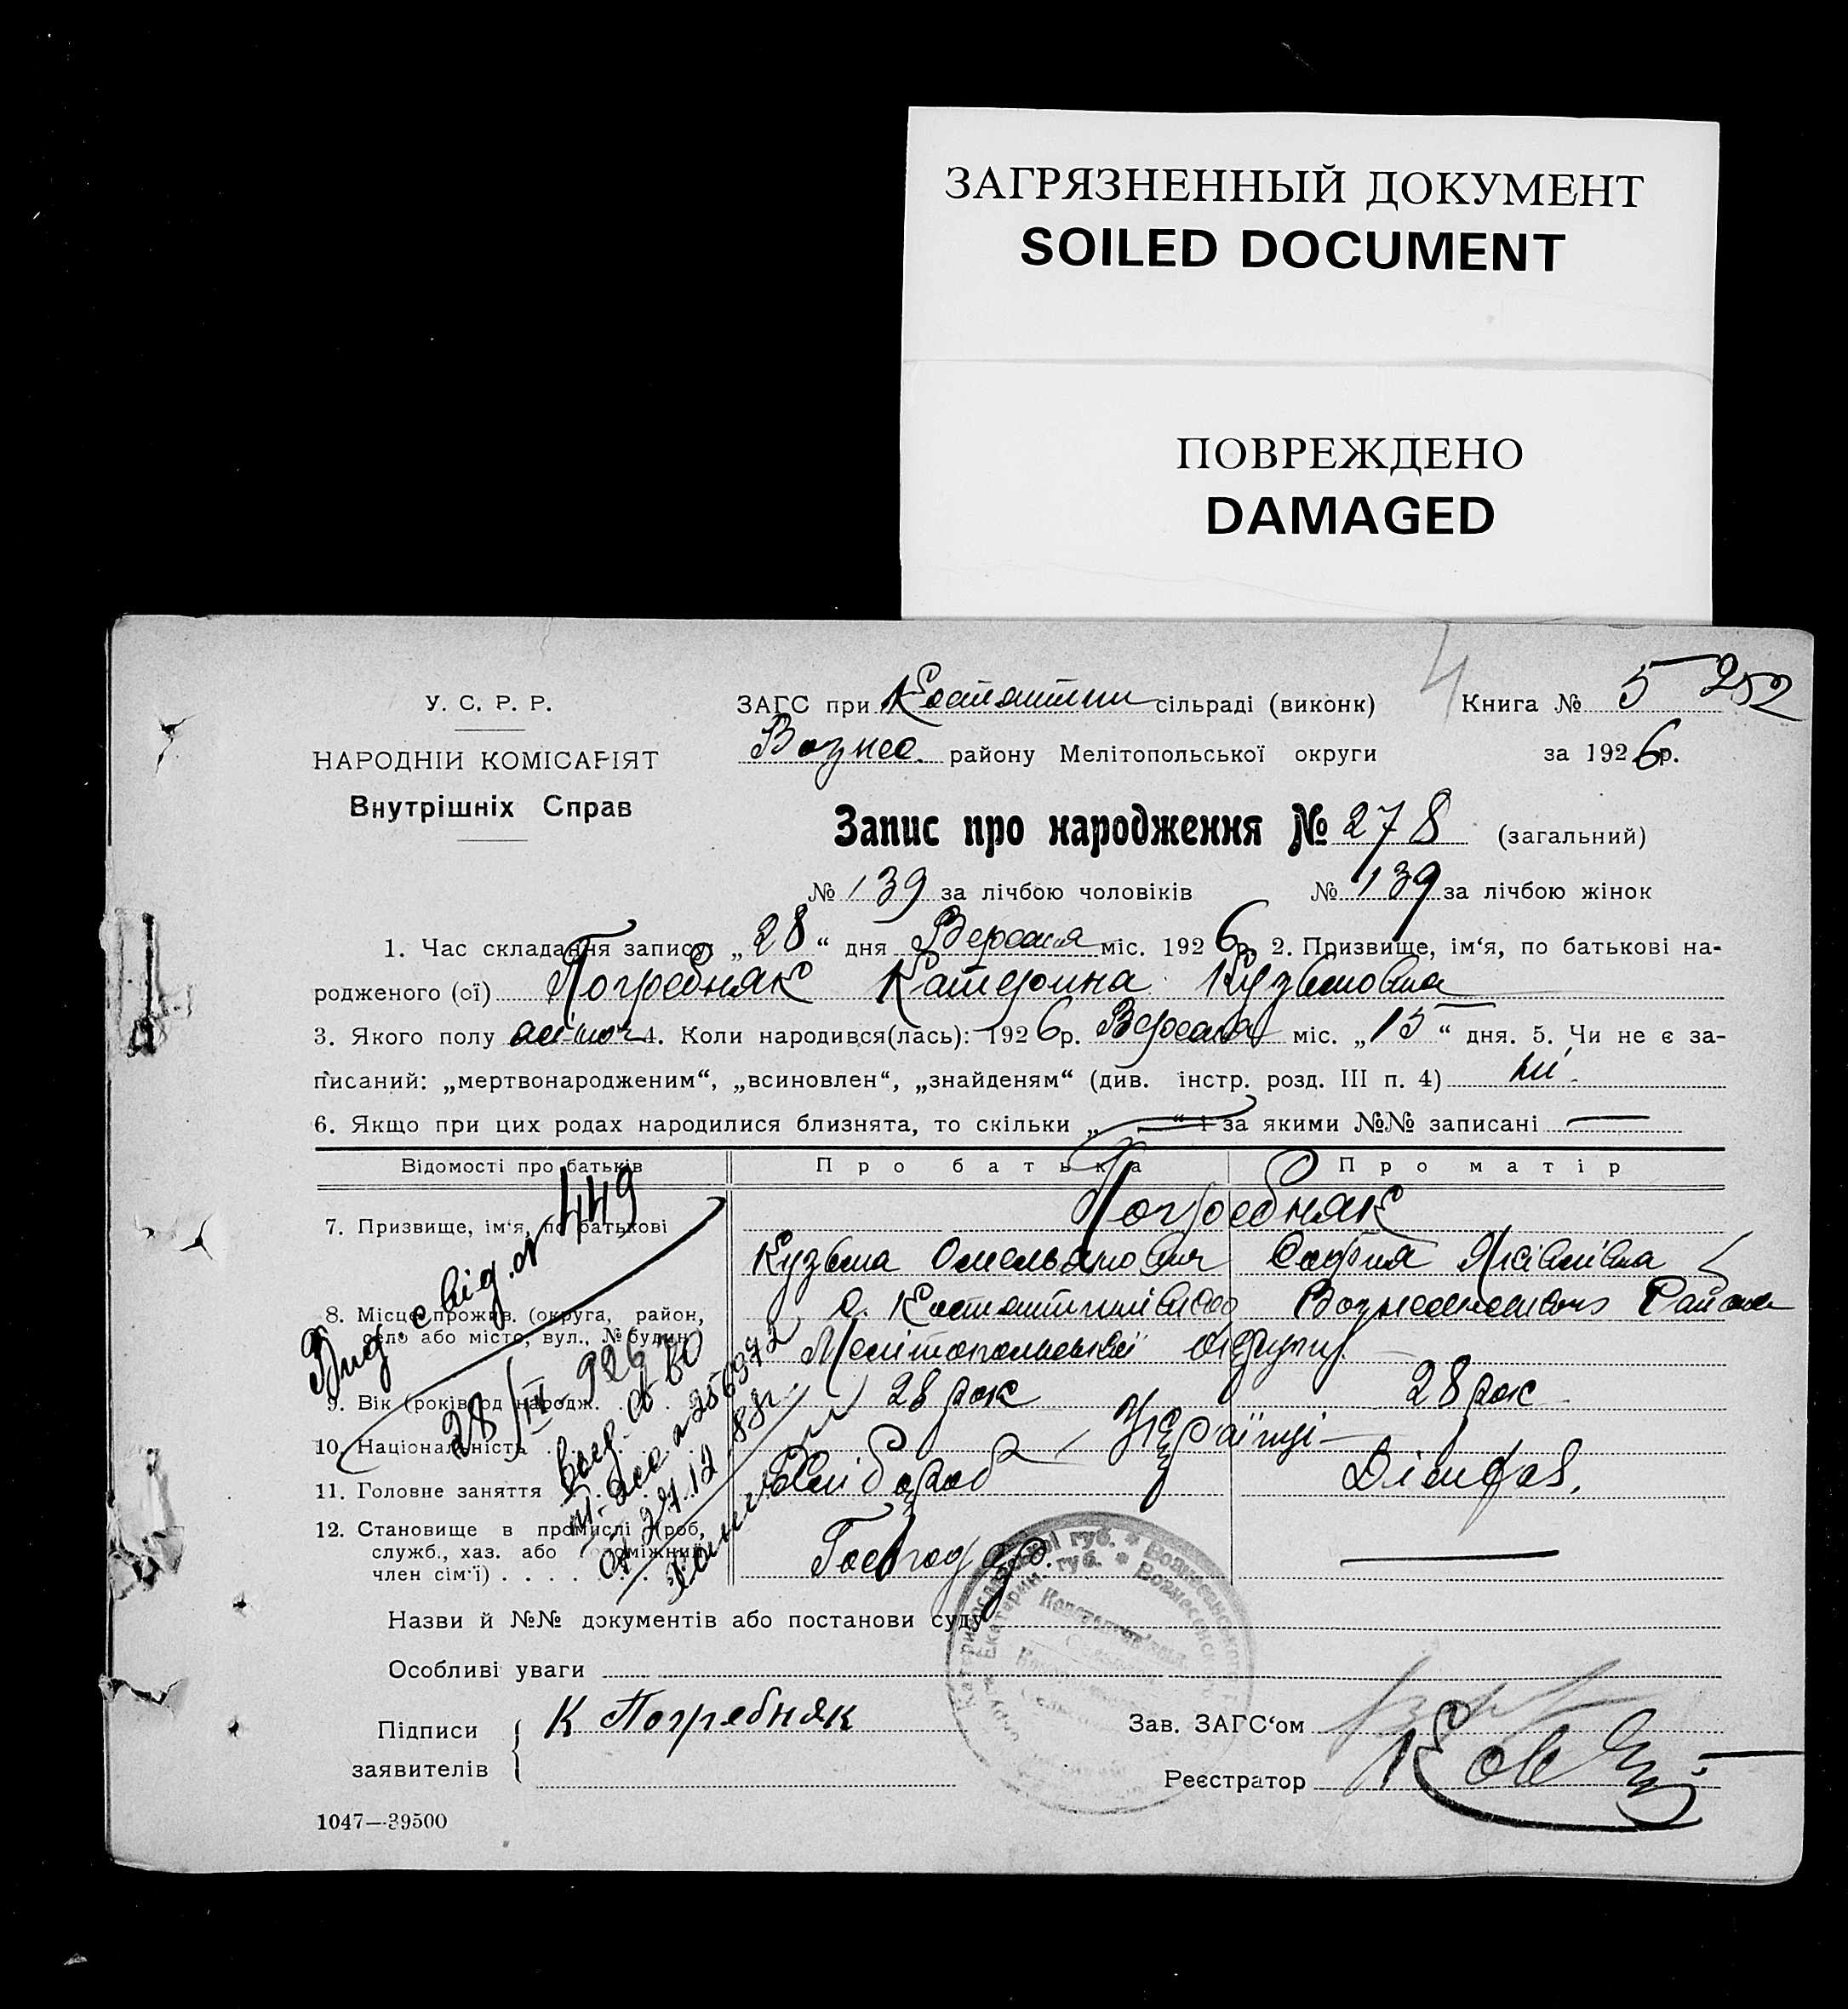 ЗАГРЯЗНЕННЫЙ ДОКУМЕНТ
SOILED DOCUMENT
ПОВРЕЖДЕНО
DAMAGED
4
У. С. Р. Р.
НАРОДНІЙ КОМІСАРІЯТ
Внутрішніх Справ
ЗАГС при Костянтин сільраді (виконк) Книга № 5 252
Вознес. району Мелітопольської округи за 1926 р.
Запис про народження № 278 (загальний)
№ 139 за лічбою чоловіків № 139 за лічбою жінок
1. Час складання запису: „28“ дня Вересня міс. 1926 р. 2. Призвище, ім‘я, по батькові на-
родженого (ої) Погребняк Катерина Кузьмовна
3. Якого полу жіноч 4. Коли народився(лась): 1926 р. Вересня міс. „15“ дня. 5. Чи не є за-
писаний: „мертвонародженим“, „всиновлен“, „знайденям“ (див. інстр. розд. III п. 4) ні.
6. Якщо при цих родах народилися близнята, то скільки „ — “ і за якими №№ записані —
Відомості про батьків Про батька Про матір
7. Призвище, ім‘я, по батькові Погребняк
Кузьма Омельянович София
8. Місце прожив. (округа, район, село або місто, вул., № будин.) с. Костянтинівка Вознесенського Району
Мелітопольської округи
9. Вік (років од народж. 28 рок 28 рок
10. Національність Українці
11. Головне заняття Хлібороб Дімгос.
12. Становище в промислі (роб, служб., хаз. або допоміжний член сім‘ї) Господар. —
Вид. свід. № 449
28/IX 926
27.12 88г
Назви й №№ документів або постанови суду
Особливі уваги
Підписи заявителів К Погребняк
Зав. ЗАГС‘ом
Реєстратор
1047—39500